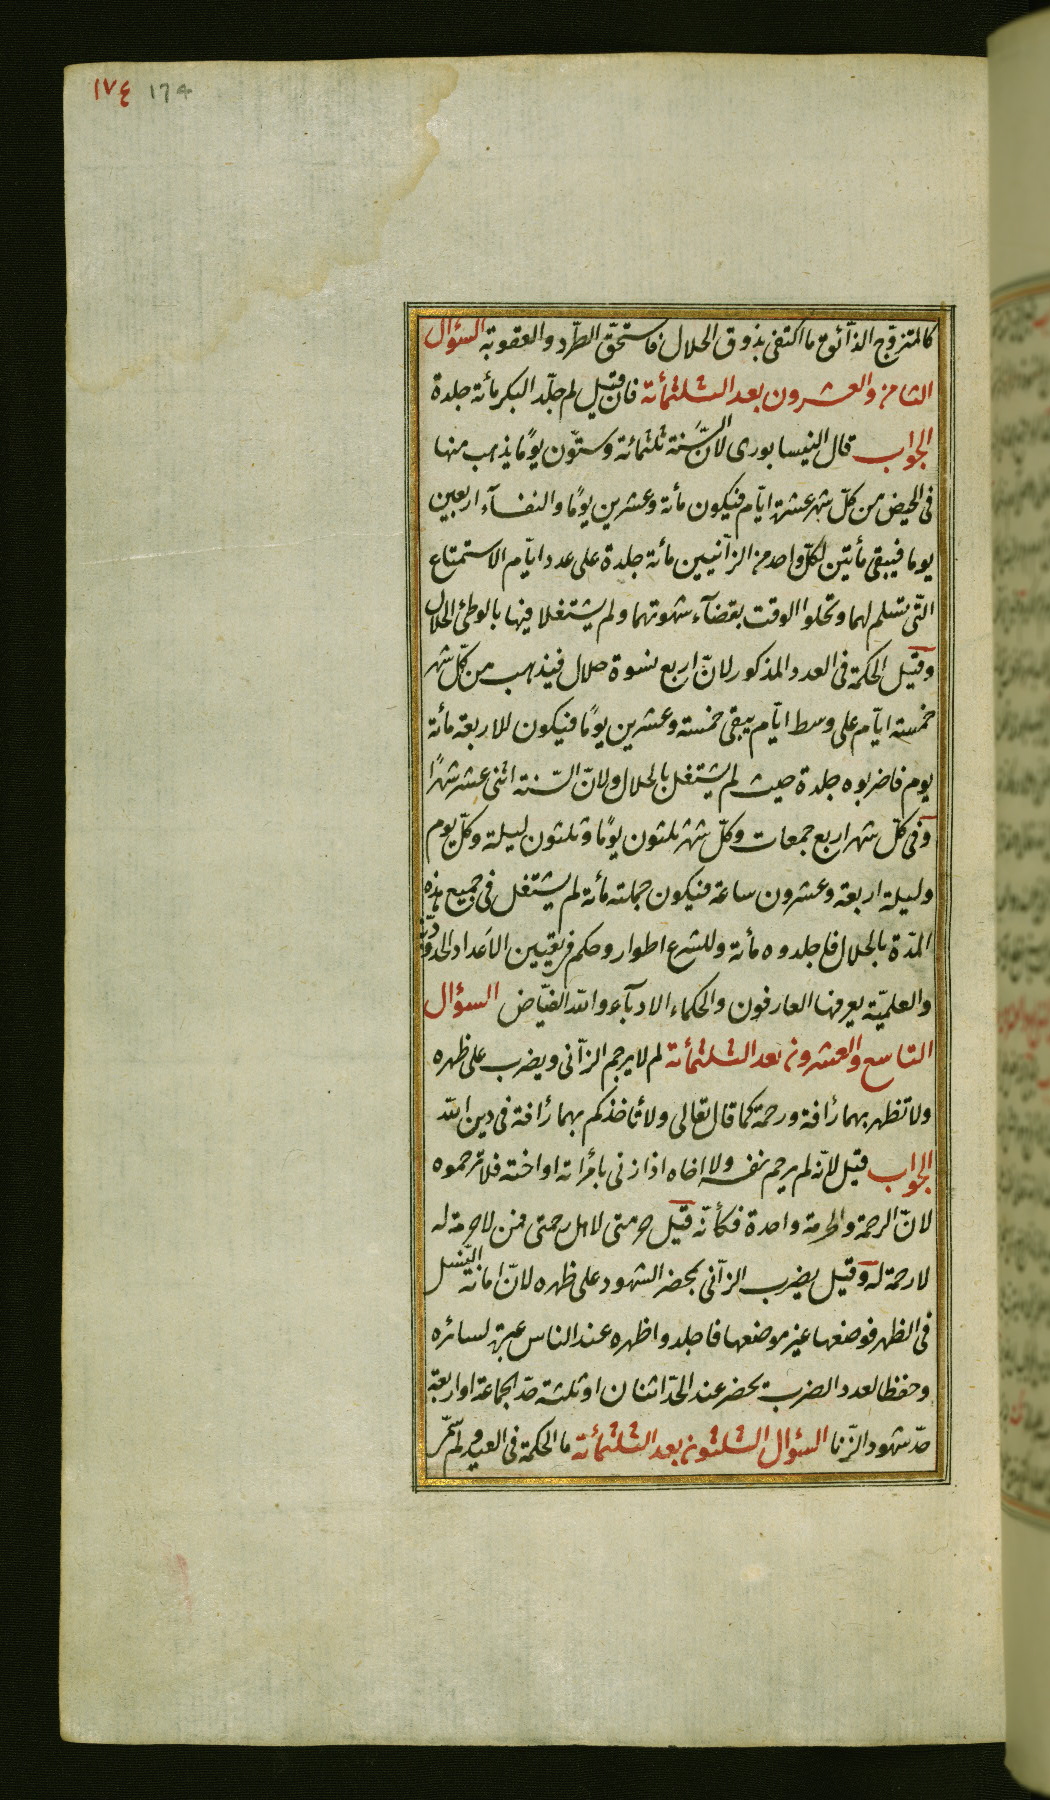 ١٧٤ ١٦٤
كالمتزوّج الذآئق ما اكتفى بذوق الحلال فاستحقّ الطّرد والعقوبة السؤال
الثامن والعشرون بعد الثلثمأئة فان قيل لم جلّد البكر مائة جلدة
الجواب قال النيسابورى لانّ السّنة ثلثمائة وستّون يومًا يذهب منها
فى الحيض من كلّ شهر عشرة ايّام فيكون مأئة وعشرين يومًا والنفسآء اربعين
يوما فيبقى مأتين لكلّ واحد من الزآنيين مائة جلدة على عدد ايّام الاستمتاع
التّى تسلم لهما وتخلوا الوقت بقضآء شهوتهما ولم يشتغلا فيها بالوطئ الحلال
وقيل الحكمة فى العدد المذكور لانّ اربع نسوة حلال فيذهب من كلّ شهر
خمسة ايّام على وسط ايّام يبقى خمسة وعشرين يومًا فيكون للاربعة مأئة
يوم فاضربوه جلدة حيث لم يشتغل بالحلال ولانّ السّنة اثنى عشر شهرًا
وفى كلّ شهر اربع جمعات وكلّ شهر ثلثون يومًا وثلثون ليلة وكلّ يوم
وليلة اربعة وعشرون ساعة فيكون جملته مأئة لم يشتغل فى جميع هذه
المدّة بالحلال فاجلدوه مأئة وللشرع اطوار وحكم فى تعيين الاعداد الحدوديّة
والعلميّة يعرفها العارفون والحكماء الادبآء والله الفيّاض السؤال
التاسع والعشرون بعد الثلثمأئة لم لا يرحم الزآنى ويضرب على ظهره
ولا تظهر بهما رأفة ورحمة كما قال تعالى ولا تأخذكم بهما رأفة فى دين الله
الجواب قيل لانّه لم يرحم نفسه ولا اخاه اذا زنى بامرأته او اخته فلا ترحموه
لانّ الرحمة والحرمة واحدة فكأنّه قيل حرمتى لاهل رحمتى فمن لا حرمة له
لا رحمة له وقيل يضرب الزآنى بمحضر الشهود على ظهره لانّ امانة النّسل
فى الظهر فوضعها غير موضعها فاجلدوا ظهره عند الناس عبرة لسائره
وحفظا لعدد الضرب يحضر عند الحدّ اثنان او ثلثة حدّ الجماعة او اربعة
حدّ شهود الزّنا السؤال الثلثون بعد الثلثمأئة ما الحكمة فى العيد لم سمّى